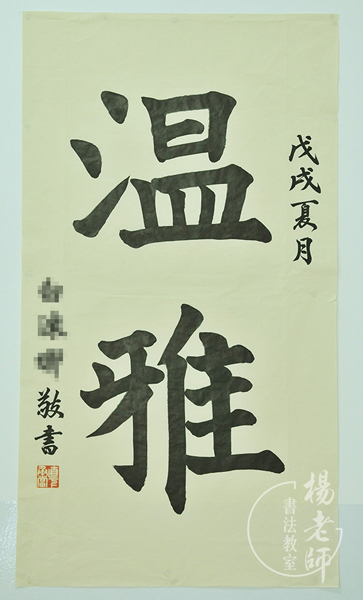 戊戌夏月
温雅
敬書
楊老師
書法教室